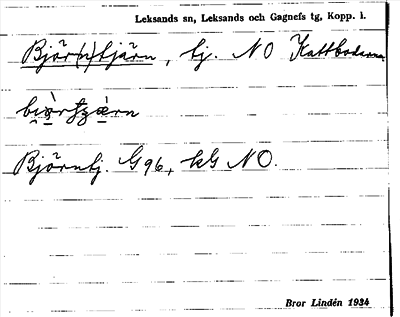 Leksands sn, Leksands och Gagnefs tg, Kopp. l.
Björ(n)tjärn, tj. NO Kattbodarna
Björntj. G 96, kG NO.
Bror Lindén 1934